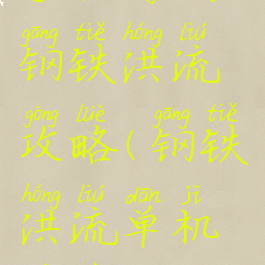 gāng tiě hóng liú
钢铁洪流
gōng lüè gāng tiě
攻略(钢铁
hóng liú dān jī
洪流单机